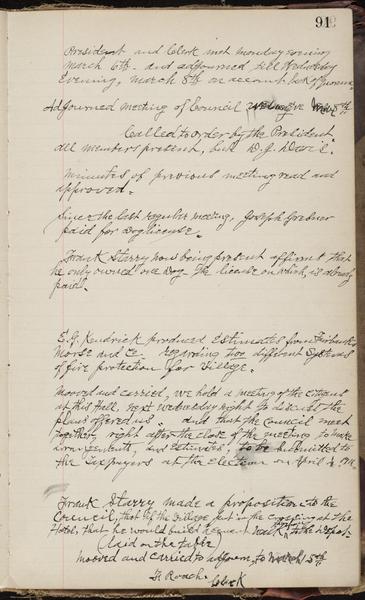 91
President and Clerk met Monday evening
March 6th. and adjourned till Wednesday
Evening, March 8th on account lack of quorum.
Adjourned meeting of Council Wed eve Mar 8th
Called to order by the President
all members present, but D. J. Davis.
Minutes of previous meeting read and
approved.
Since the last regular meeting, Joseph
paid for Dog license.
Frank Starry now being present affirms that
he only owned one dog - the license on which, is already
paid.
E. G. Kendrick produced Estimates from Fairbanks
Morse and Co. Regarding two different Systems
of fire protection for Village.
Mooved and carried, we hold a meeting of the citizens
at this Hall, next Wednesday night to discuss the
plans offered us. and that the Council meet
together, right after the close of the meeting to make
arrangements, and Estimates, to be submitted to
the taxpayers at the election on April 4
Frank Starry made a proposition to the
Council, that if the Village put in the crossing at the
Hotel, that he would build cement walk to the Depot.
Laid on the table
mooved and carried to adjourn, to March
F. Roach. Clerk